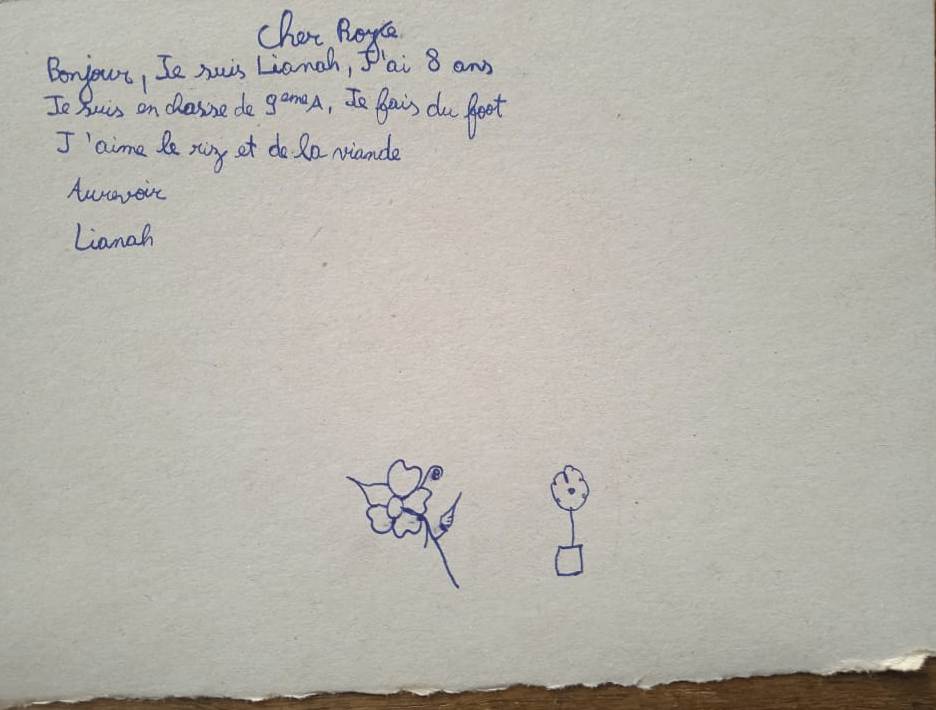 Cher Royce
Bonjour, Je suis Lianah, J'ai 8 ans
Je suis en classe de 9emeA, Je fais du foot
J'aime le riz et de la viande
Aurevoir
Lianah